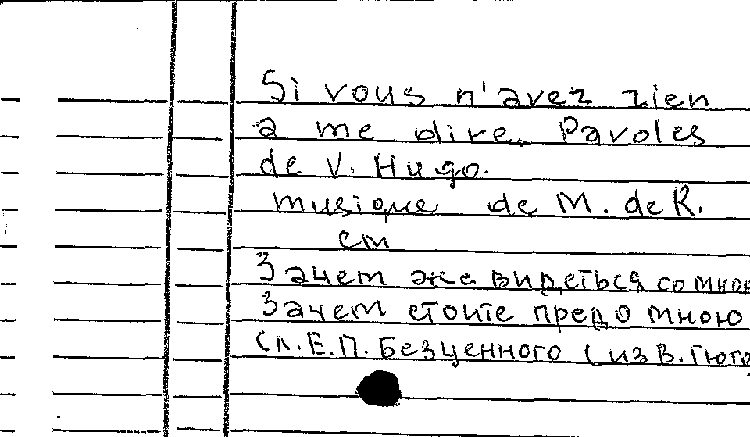 Si vous n'avez rien
a me dire. Paroles
de V. Hugo.
musique de M. de R.
cm
Зачем же видеться со мною
Зачем стоите предо мною
Сл. Е.П. Безценного (из В. Гюго